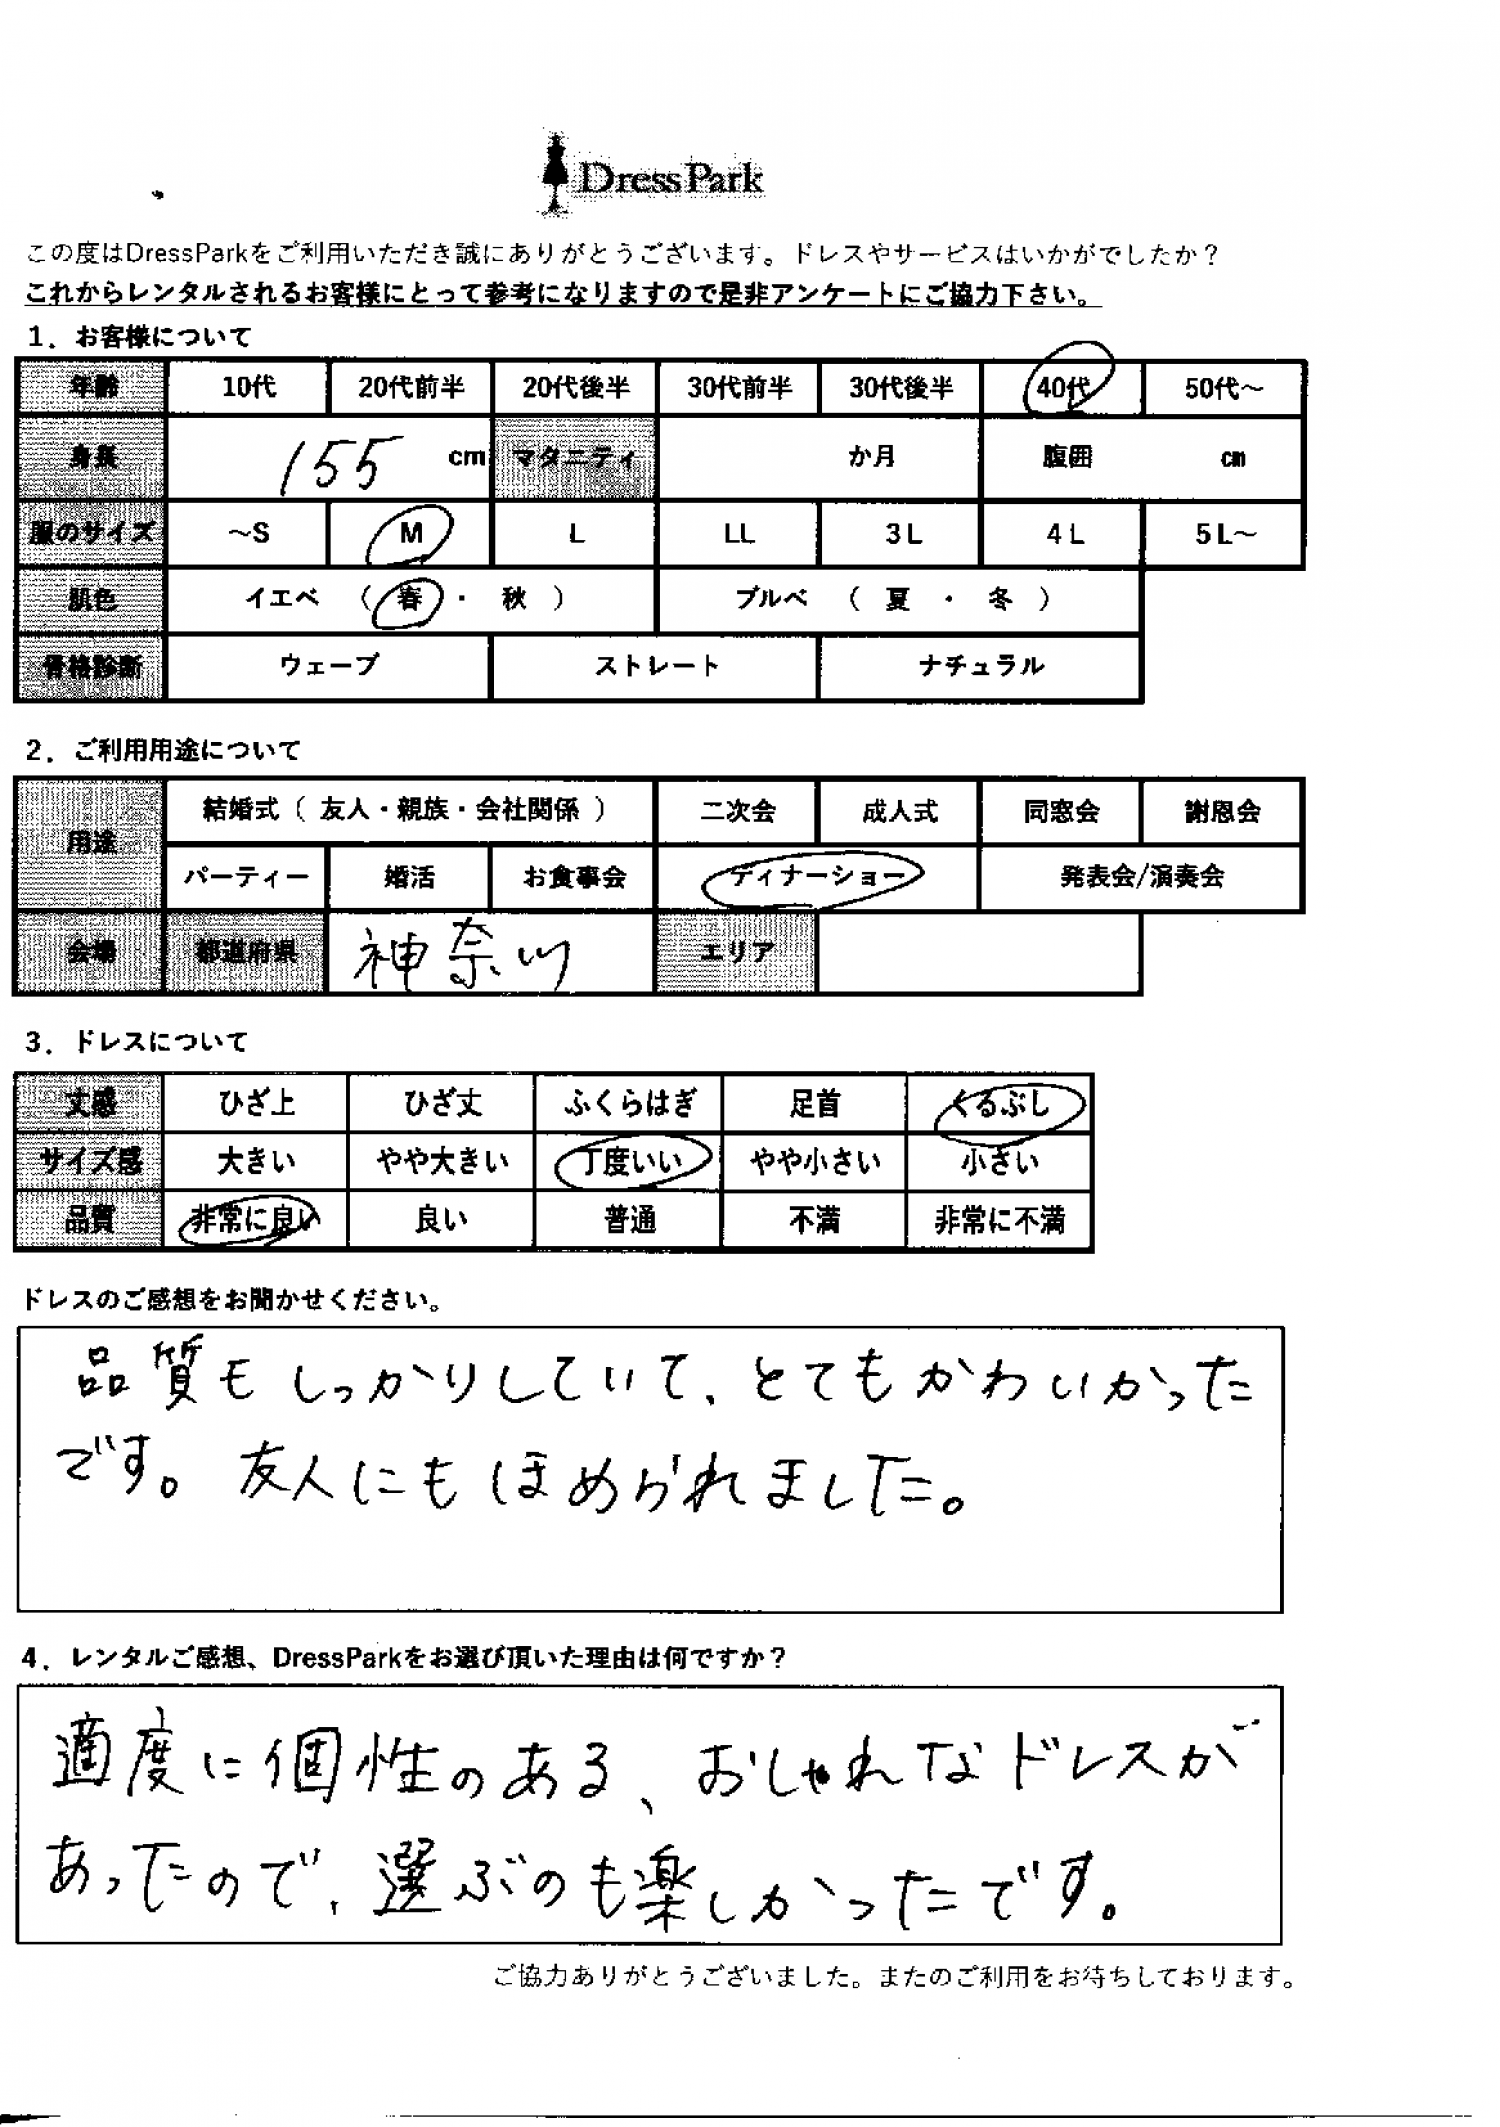 DressPark
この度はDressParkをご利用いただき誠にありがとうございます。ドレスやサービスはいかがでしたか？
これからレンタルされるお客様にとって参考になりますので是非アンケートにご協力下さい。
1．お客様について
年齢 10代 20代前半 20代後半 30代前半 30代後半 40代 50代～
身長 155 cm マタニティ か月 腹囲 cm
服のサイズ ～S M L LL 3L 4L 5L～
肌色 イエベ （ 春 ・ 秋 ） ブルべ （ 夏 ・ 冬 ）
骨格診断 ウェーブ ストレート ナチュラル
2．ご利用用途について
用途 結婚式（ 友人・親族・会社関係 ） 二次会 成人式 同窓会 謝恩会
パーティー 婚活 お食事会 ディナーショー 発表会/演奏会
会場 都道府県 神奈川 エリア
3．ドレスについて
丈感 ひざ上 ひざ丈 ふくらはぎ 足首 くるぶし
サイズ感 大きい やや大きい 丁度いい やや小さい 小さい
品質 非常に良い 良い 普通 不満 非常に不満
ドレスのご感想をお聞かせください。
品質もしっかりしていて、とてもかわいかった
です。友人にもほめられました。
4．レンタルご感想、DressParkをお選び頂いた理由は何ですか？
適度に個性のある、おしゃれなドレスが
あったので、選ぶのも楽しかったです。
ご協力ありがとうございました。またのご利用をお待ちしております。